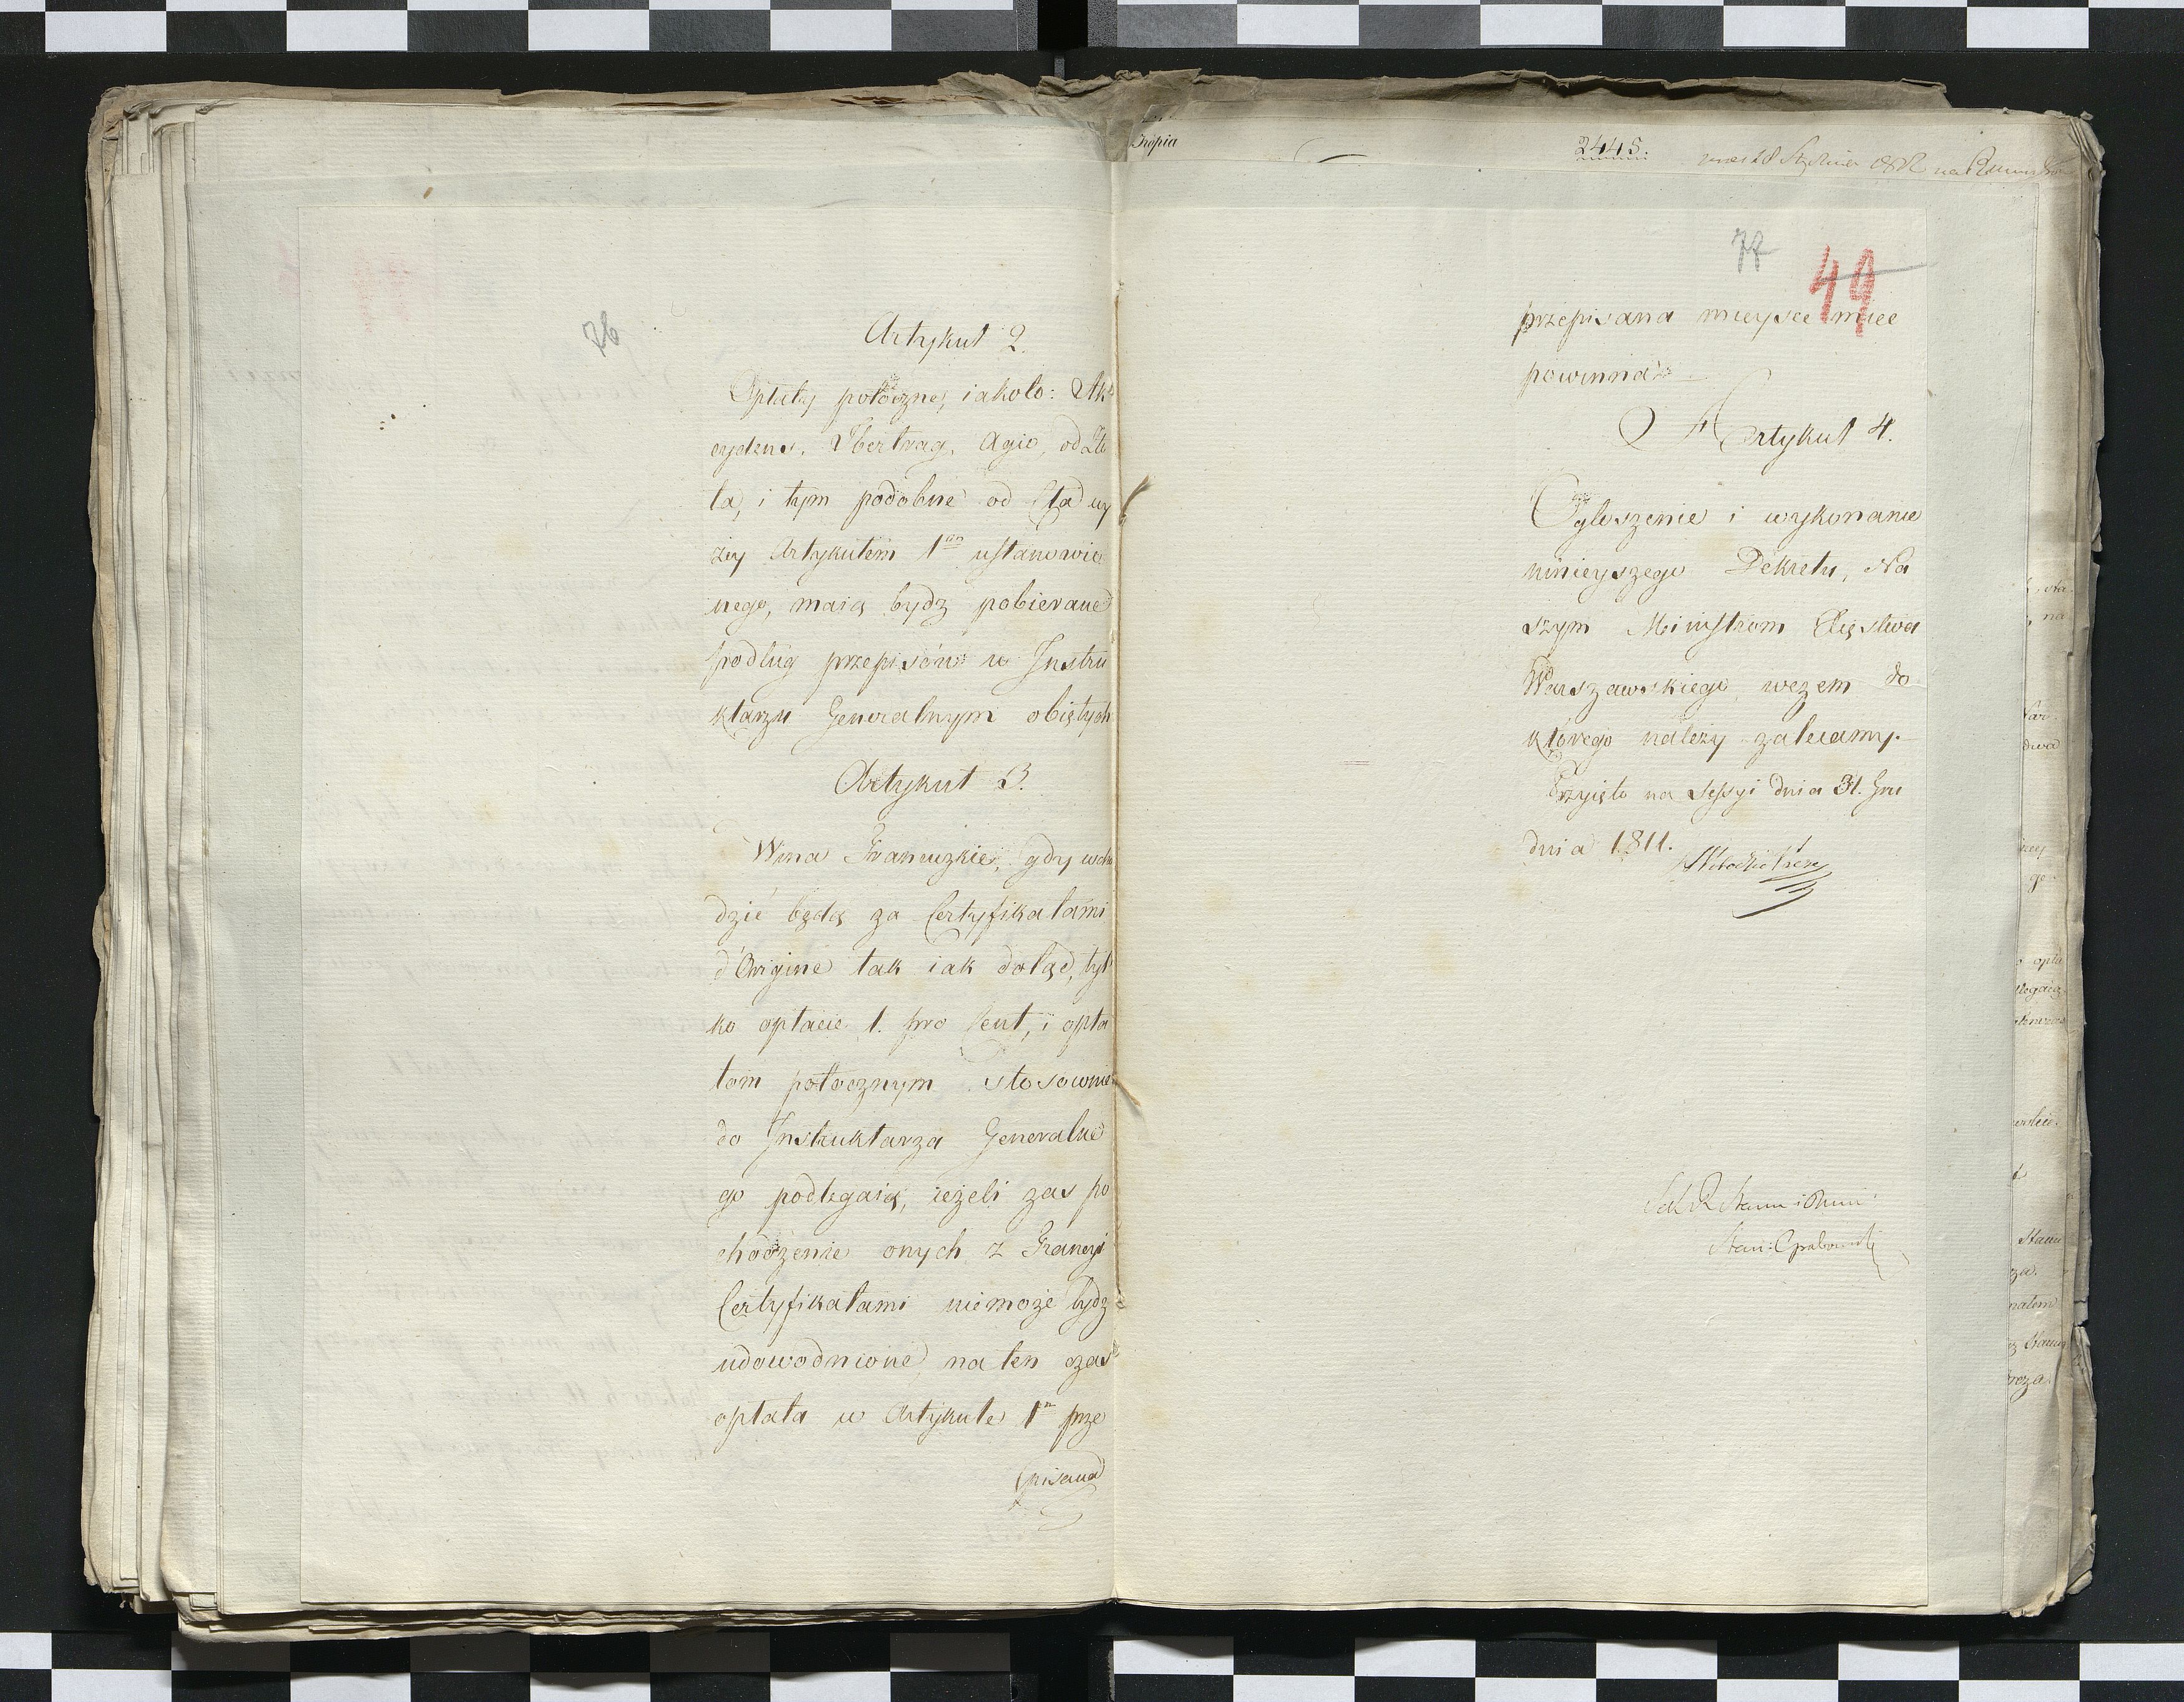 76
Artykuł 2.
Opłaty potoczne, iakoto: Ak
cydens, Ubertrag, Agio, od Zło
ta, i tym podobne od Cła wy
żey Artykułem 1ym ustanowio
nego, maią bydz pobierane
podług przepisów w Instru
ktarzu Generalnym obiętych
Artykuł 3.
Wina Francuzkie, gdy wcho
dzić będą za Certyfikatami
d'Origine tak iak dotąd, tyl
ko opłacie 1. pro Cent, i opła
tom potocznym stosownie
do Instruktarza Generalne
go podlegaią, ieżeli zas po
chodzenie onych z Francyi
Certyfikatami niemoże bydz
udowodnione, na ten czas
opłata w Artykule 1m prze
pisana
Kopia
2445.
77
49
przepisana mieysce miec
powinna
Artykuł 4.
Ogłoszenie i wykonanie
ninieyszego Dekretu, Na
szym Ministrom Xięstwa
Warszawskiego wczem do
którego należy zalecamy.
Przyięto na Sessyi dnia 31. Gru
dnia 1811.
Sek R Stanu i Mini
Stan: Grabowski